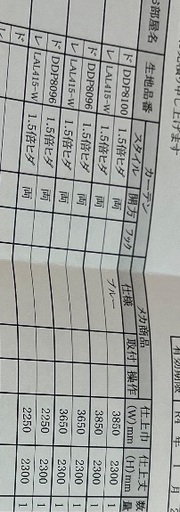 お申し上げます
有効期限 R4 年 1 月
部屋名 生地品番 カーテン スタイル 開方 フック メカ商品 仕様 取付 操作 仕上巾(W)mm 仕上丈(H)mm 数量
ド DDP8100 1.5倍ヒダ 両 ブルー 3650 2300 1
レ LAL415-W 1.5倍ヒダ 両 3650 2300 1
ド DDP8096 1.5倍ヒダ 両 3650 2300 1
レ LAL415-W 1.5倍ヒダ 両 3650 2300 1
ド DDP8096 1.5倍ヒダ 両 2250 2300 1
レ LAL415-W 1.5倍ヒダ 両 2250 2300 1
ド
レ